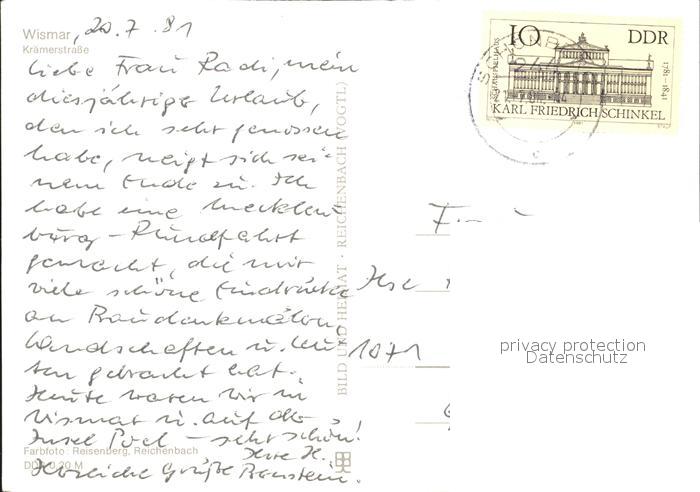 Wismar, 20.7.81
Krämerstraße
liebe Frau Radi, mein
diesjähriger Urlaub,
den ich sehr genossen
habe, neigt sich sei-
nem Ende zu. Ich
habe eine Mecklen-
burg-Rundfahrt
gemacht, die mir
viele schöne Eindrücke
an Baudenkmälern,
Landschaften u. Leu-
ten gebracht hat.
Heute waren wir in
Wismar u. auf der
Insel Poel – sehr schön!
Herzliche Grüße
Ihre H. Bernstein.
Farbfoto: Reisenberg, Reichenbach
DDR 0,20 M
BILD UND HEIMAT · REICHENBACH (VOGTL)
10 DDR
SCHAUSPIELHAUS
1781–1841
KARL FRIEDRICH SCHINKEL
1981
Ilse
1071
privacy protection
Datenschutz